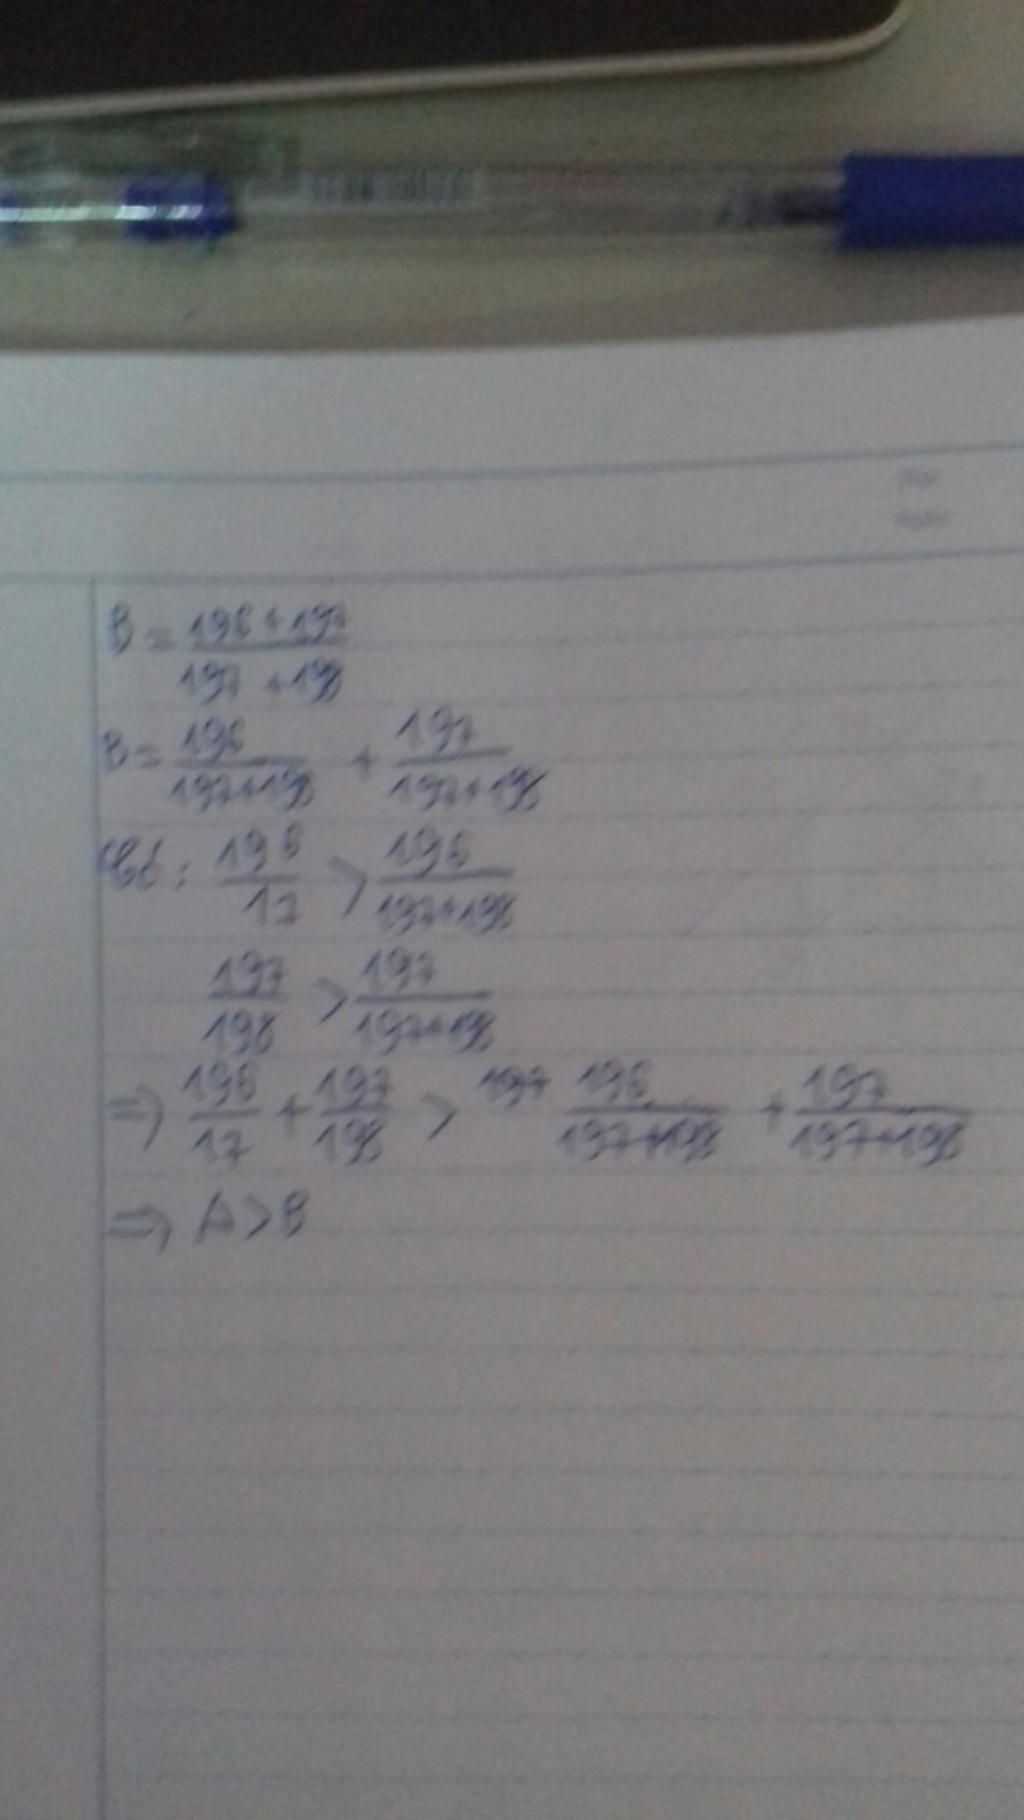 B = (196 + 197)/(197 + 198)
B = 196/(197+198) + 197/(197+198)
196/17 > 196/(197+198)
197/198 > 197/(197+198)
=> 196/17 + 197/198 > 196/(197+198) + 197/(197+198)
=> A > B